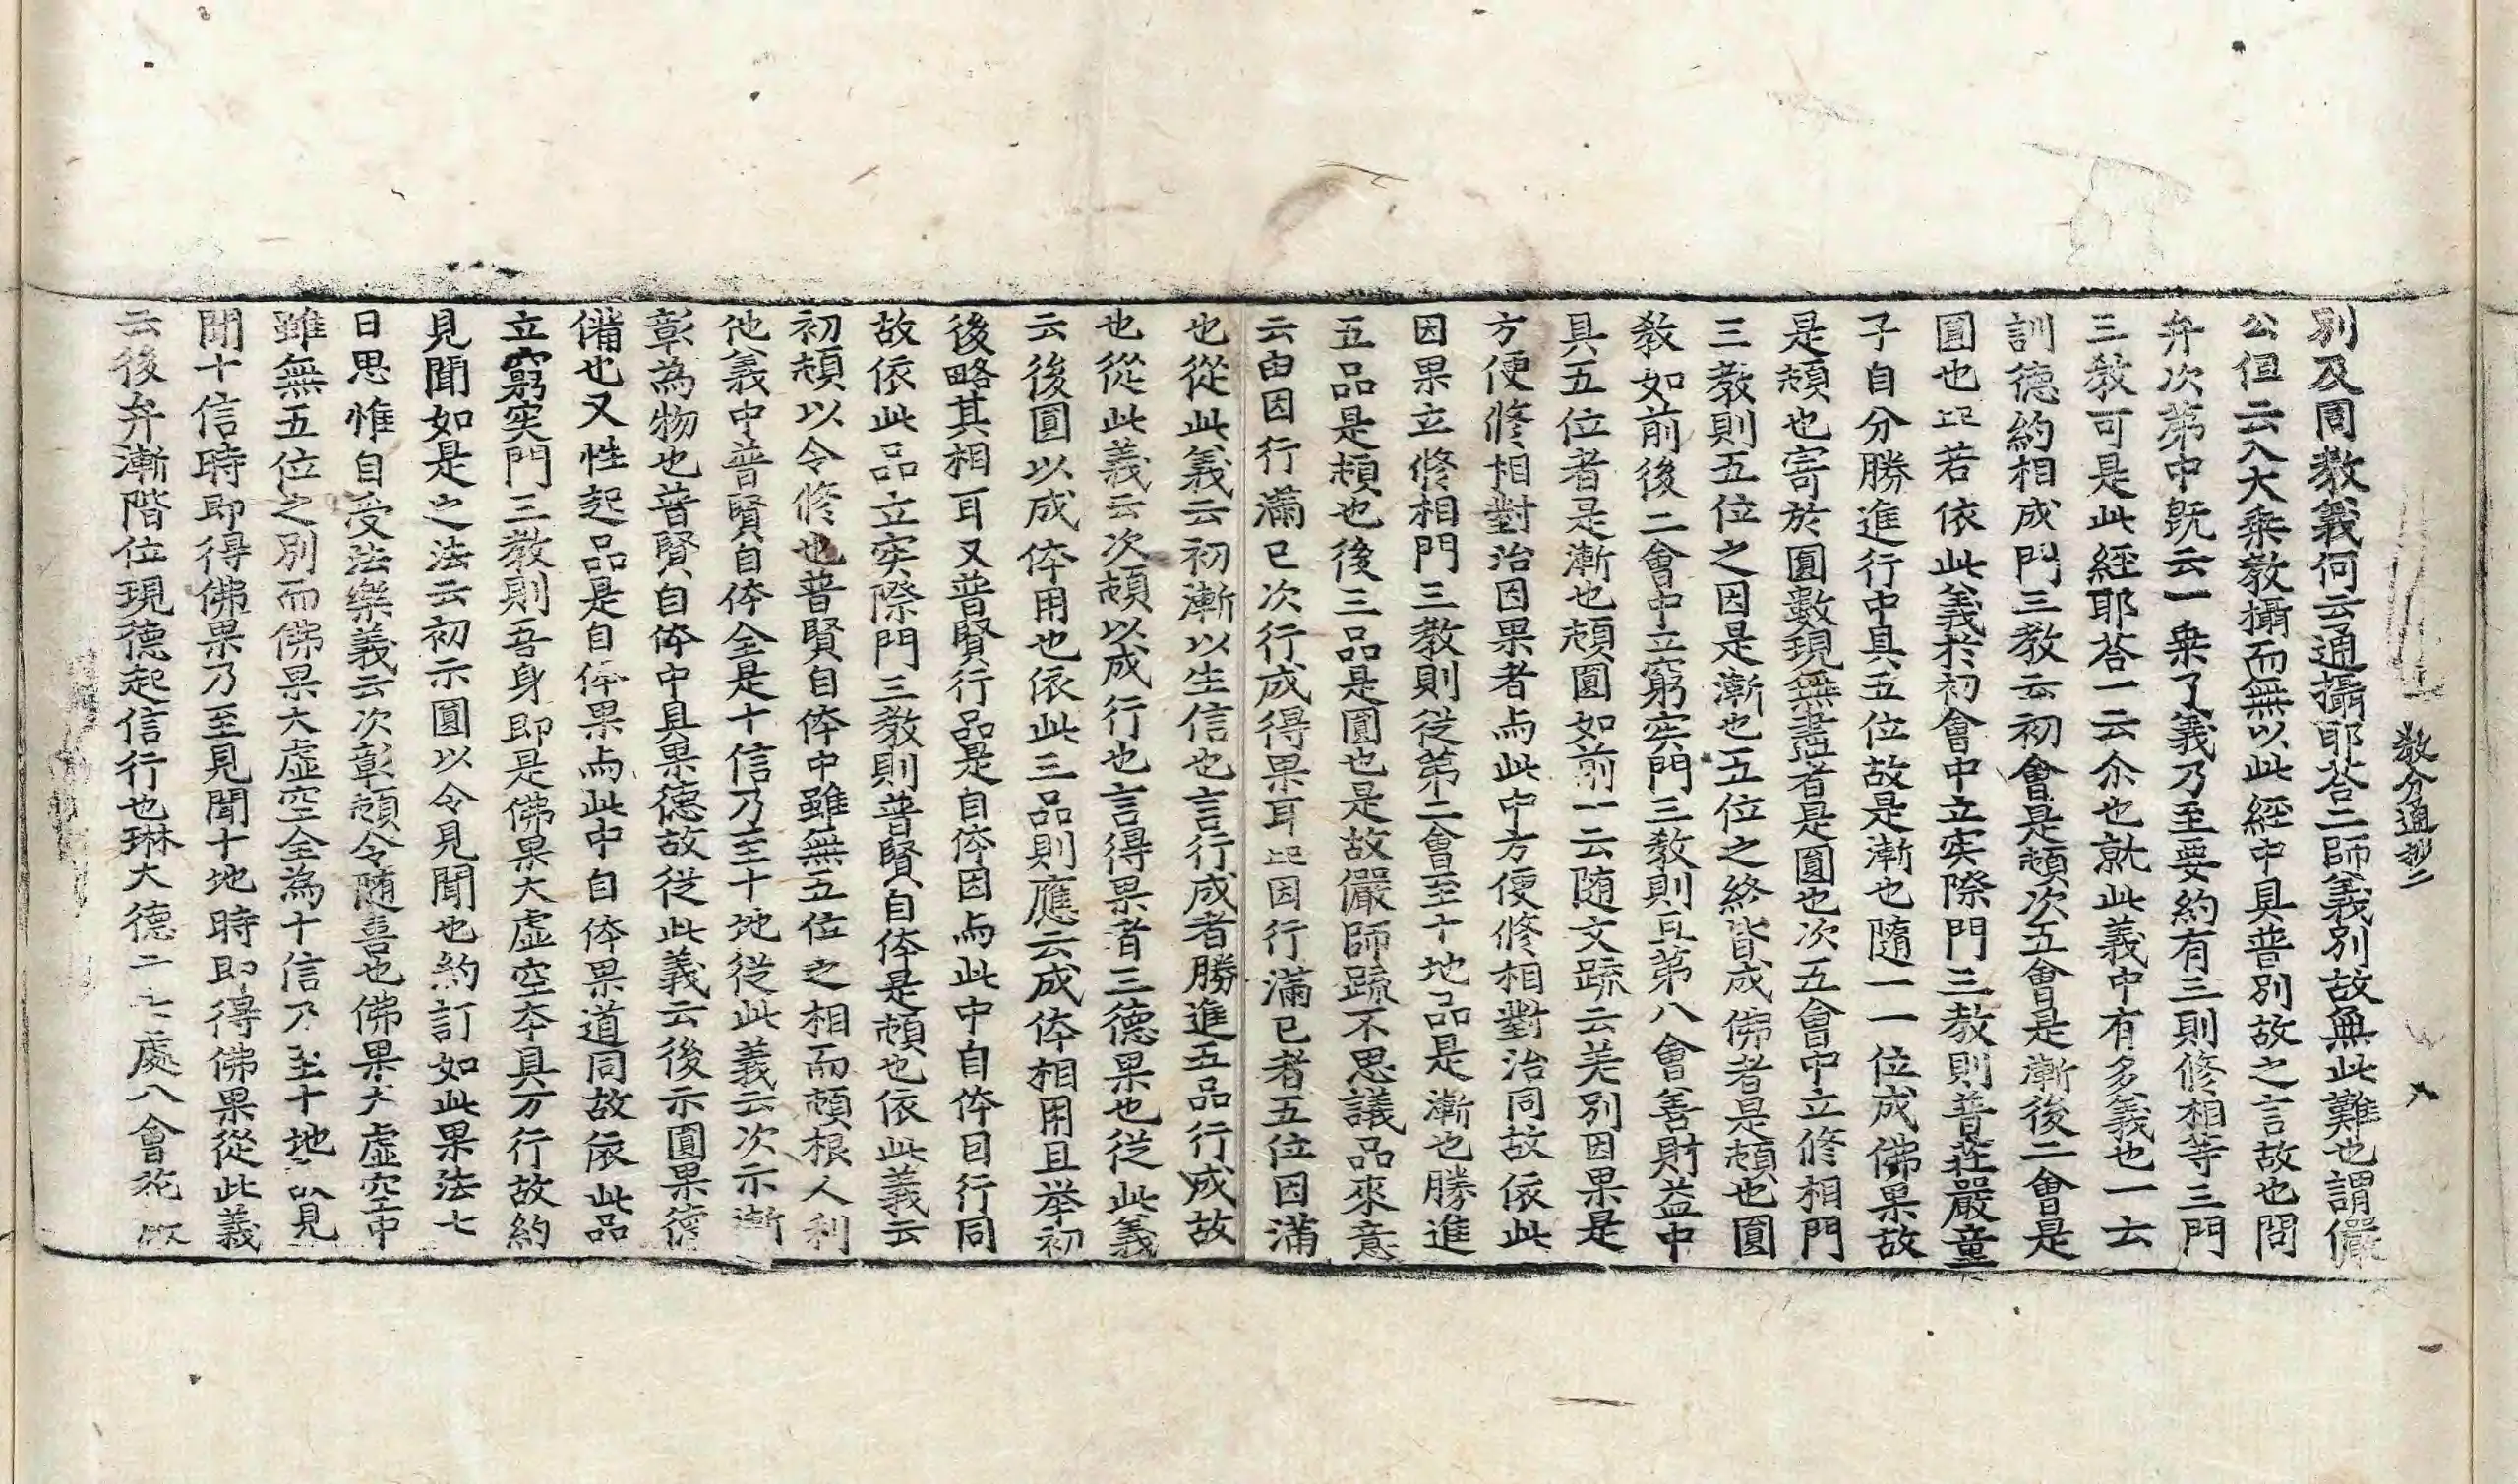 教分通抄二
八
別及同教義何云通攝耶荅二師義別故無此難也謂儼
公但云入大乗教攝而無以此經中具普別故之言故也問
弁次第中既云一乗了義乃至要約有三則修相等三門
三教可是此經耶荅一云尒也就此義中有多義也一云
訓德約相成門三教云初會是頓次五會是漸後二會是
圓也 若依此義於初會中立实際門三教則普莊嚴童
子自分勝進行中具五位故是漸也隨一一位成佛果故
是頓也寄於圓數現無盡者是圓也次五會中立修相門
三教則五位之因是漸也五位之終皆成佛者是頓也圓
教如前後二會中立窮实門三教則亘第八會善財益中
具五位者是漸也頓圓如前一云随文䟽云差別因果是
方便修相對治因果者与此中方便修相對治同故依此
因果立修相門三教則從第二會至十地品是漸也勝進
五品是頓也後三品是圓也是故儼師䟽不思議品來意
云由因行滿已次行成得果耳 因行滿已者五位因滿
也從此義云初漸以生信也言行成者勝進五品行成故
也從此義云次頓以成行也言得果者三德果也從此義
云後圓以成体用也依此三品則應云成体相用且举初
後略其相耳又普賢行品是自体因与此中自体因行同
故依此品立实際門三教則普賢自体是頓也依此義云
初頓以令修也普賢自体中雖無五位之相而頓根人利
他義中普賢自体全是十信乃至十地從此義云次示漸
彰為物也普賢自体中具果德故從此義云後示圓果德
備也又性起品是自体果与此中自体果道同故依此品
立窮实門三教則吾身即是佛果大虛空夲具万行故約
見聞如是之法云初示圓以令見聞也約訂如此果法七
日思惟自受法樂義云次彰頓令随喜也佛果大虛空中
雖無五位之別而佛果大虛空全為十信乃至十地 見
聞十信時即得佛果乃至見聞十地時即得佛果從此義
云後弁漸階位現德起信行也琳大德 七處八會